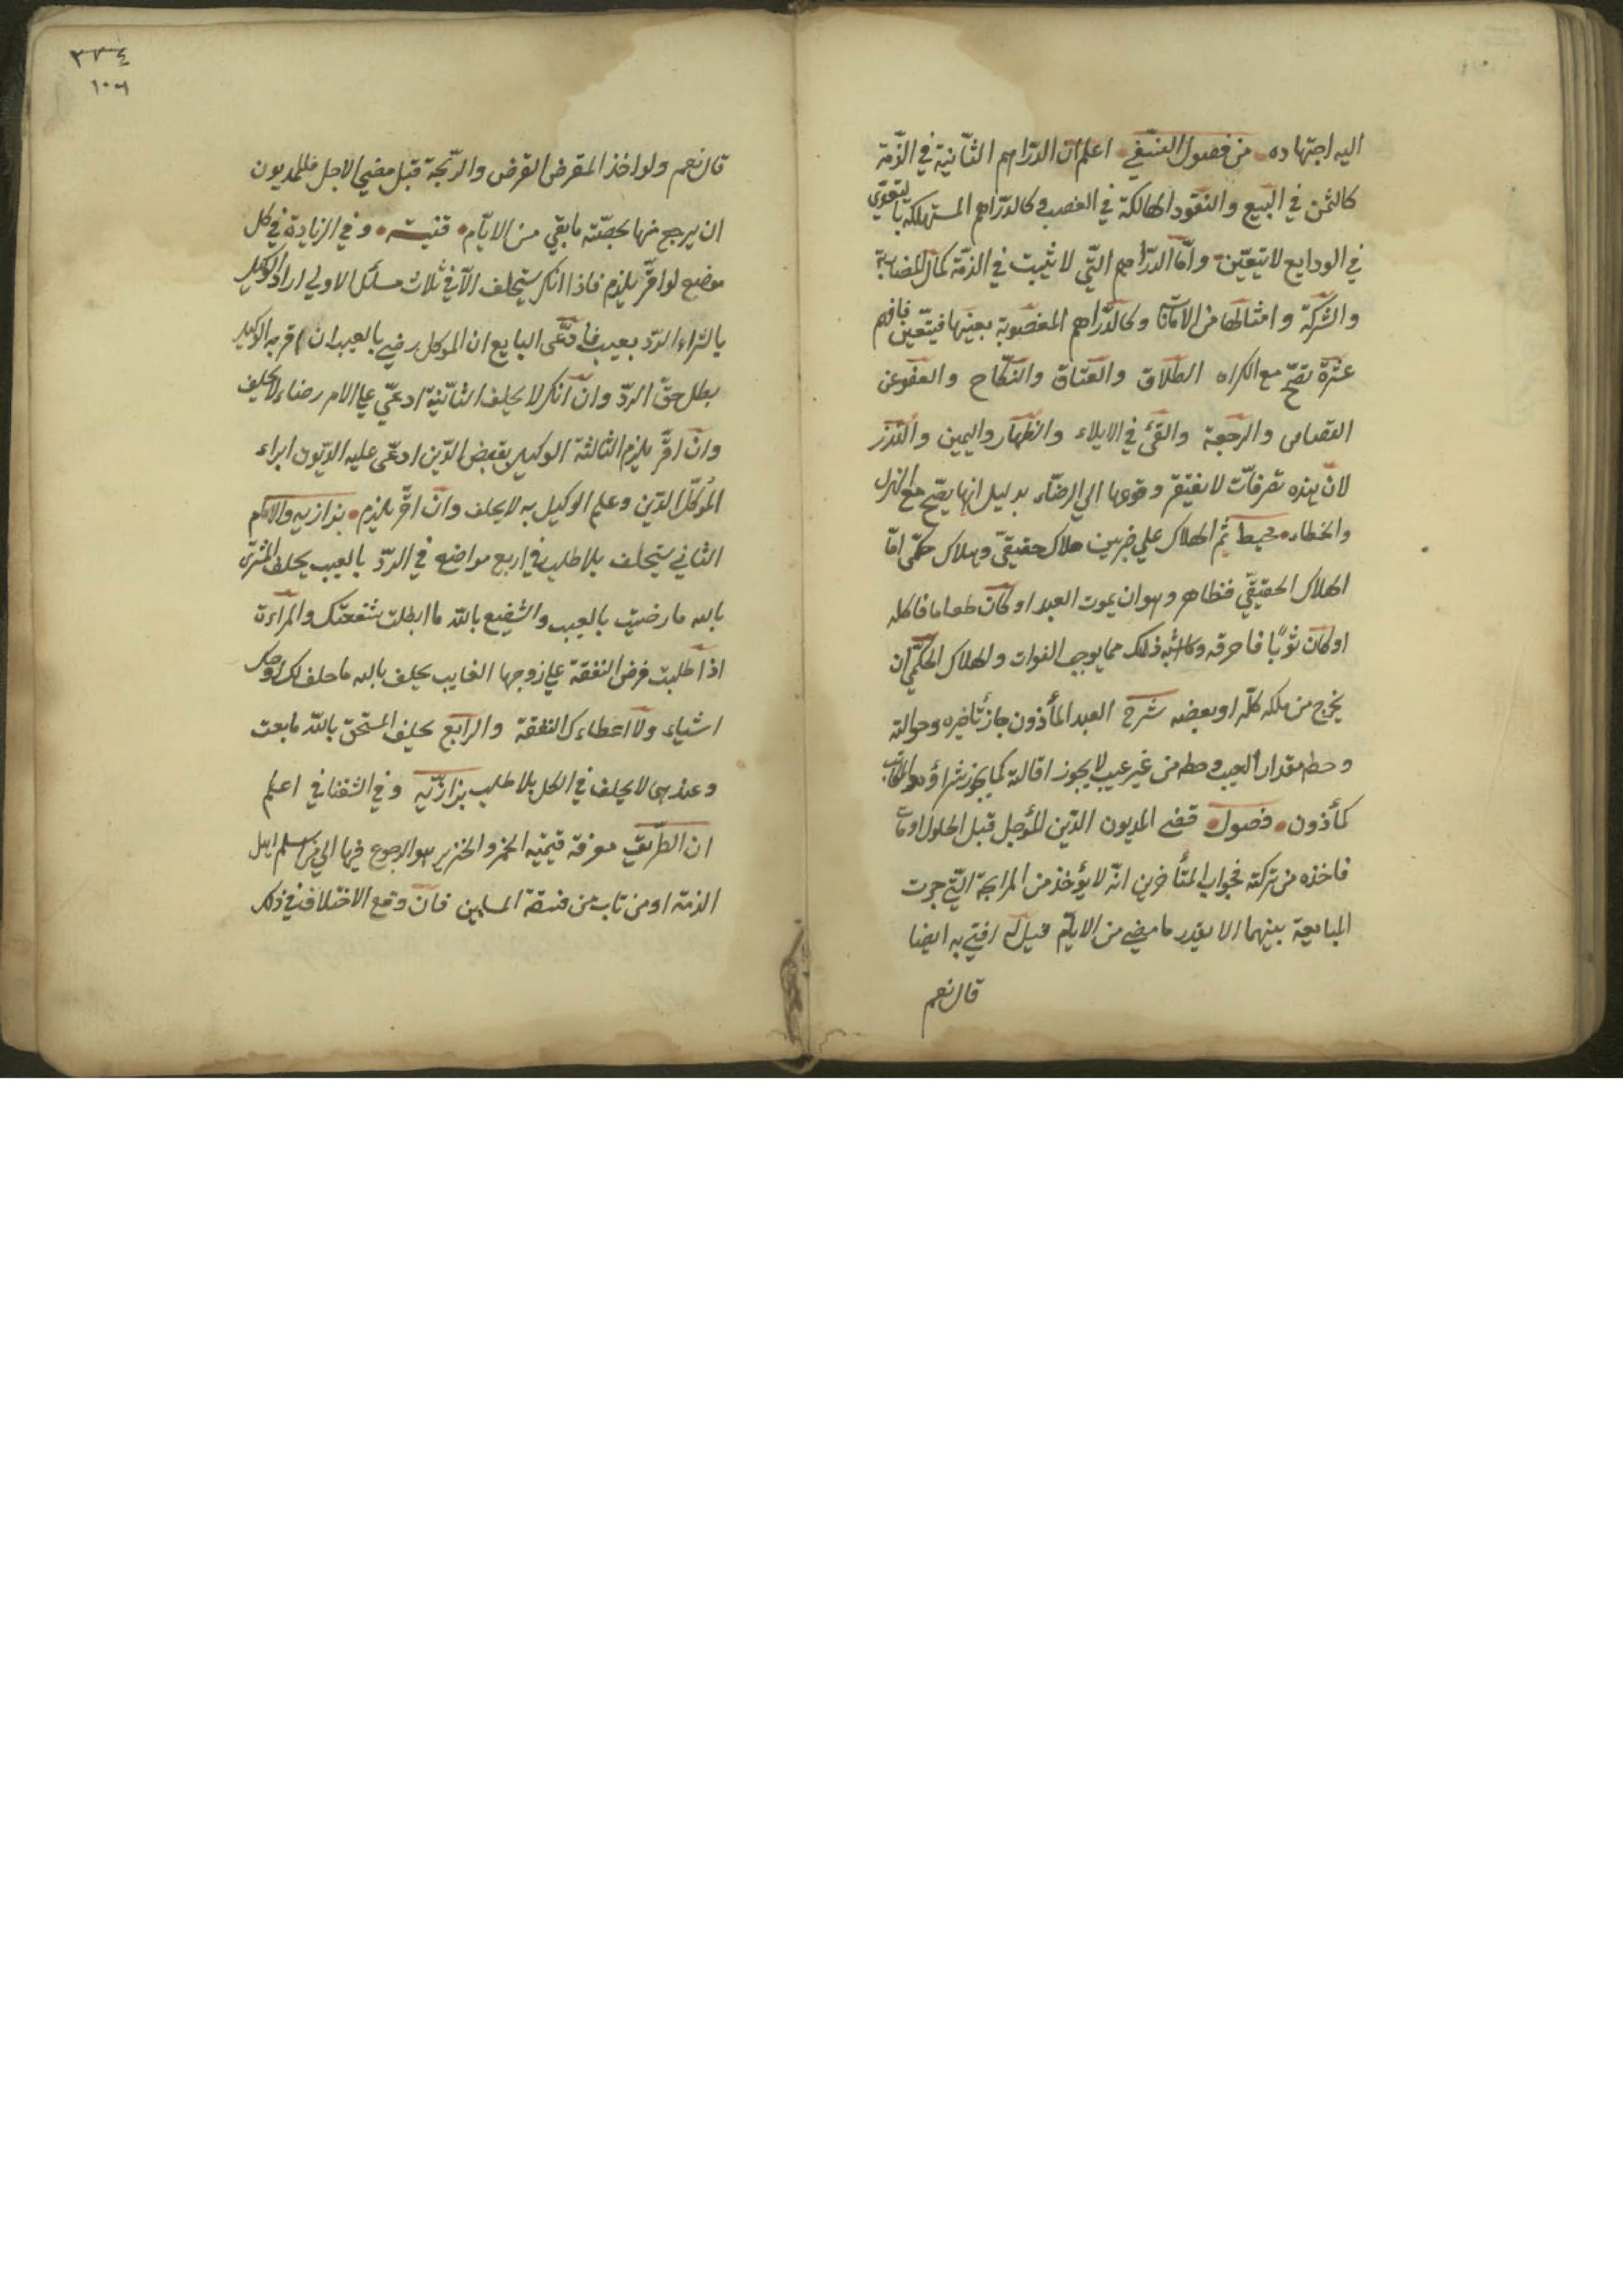 اليه اجتهاده من فصول النسفي اعلم ان الدراهم الثانية في الذمة
كالثمن في البيع والنقود الهالكة في الغصب وكالدراهم المستهلكة بالتعدي
في الودايع لا تتعين واما الدراهم التي لا تثبت في الذمة كمال المضاربة
والشركة وامثالها من الامانات وكالدراهم المغصوبة بعينها فيتعين فافهم
عشرة تصح مع الكراه الطلاق والعتاق والنكاح والعفو عن
القصاص والرجعة والفئ في الايلاء والظهار واليمين والنذر
لان هذه تصرفات لا يفتقر وقوعها الي الرضاء بدليل انها يصح مع الهزل
والخطاء محيط ثم الهلاك علي ضربين هلاك حقيقي وهلاك حكمي اما
الهلاك الحقيقي فظاهر وهو ان يموت العبد او كان طعاما فاكله
او كان ثوبا فاحرقه وما اشبه ذلك مما يوجب الفوات والهلاك الحكمي ان
يخرج من ملكه كله او بعضه شرح العبد المأذون جاز تأخيره وحوالته
وحط مقدار العيب وحط من غير عيب لا يجوز اقالته كما يجوز شراؤه والمكاتب
كمأذون فصول قضي المديون الدين المؤجل قبل الحلول او مات
فاخذه من تركته فجواب المتأخرين انه لا يؤخذ من المرابحة التي جرت
المبايعة بينهما الا بقدر ما مضي من الايام قيل له افتي به ايضا
قال نعم
٣٧٤
١٠٦
قال نعم ولو اخذ المقرض القرض والربحة قبل مضي الاجل فللمديون
ان يرجع منها بحصته ما بقي من الايام قنيته وفي الزيادة في كل
موضع لو اقر يلزم فاذا انكر يستحلف الا في ثلاث مسائل الاولي اراد الوكيل
بالشراء الرد بعيب فادعى البايع ان الموكل رضي بالعيب ان اقر به الوكيل
بطل حق الرد وان انكر لا يحلف الثانية ادعي علي الامر رضاء لا يحلف
وان اقر يلزم الثالثة الوكيل بقبض الدين ادعى عليه الديون ابراء
المؤكل الدين وعلم الوكيل به لا يحلف وان اقر يلزم بزازيه والامام
الثاني يستحلف بلا طلب في اربع مواضع في الرد بالعيب يحلف المشتري
بالله ما رضيت بالعيب والشفيع بالله ما ابطلت شفعتك والمراءة
اذا طلبت فرض النفقة علي زوجها الغايب يحلف بالله ما خلف لك زوجك
اشياء ولا اعطاءك النفقة والرابع يحلف المستحق بالله ما بعت
وعندهما لا يحلف في الكل بلا طلب بزازيه وفي الشغناقي اعلم
ان الطريق معرفة قيمته الخمر والخنزير هو الرجوع فيها الي من اسلم اهل
الذمة او من تاب من فسقة المسلمين فان وقع الاختلاف في ذلك